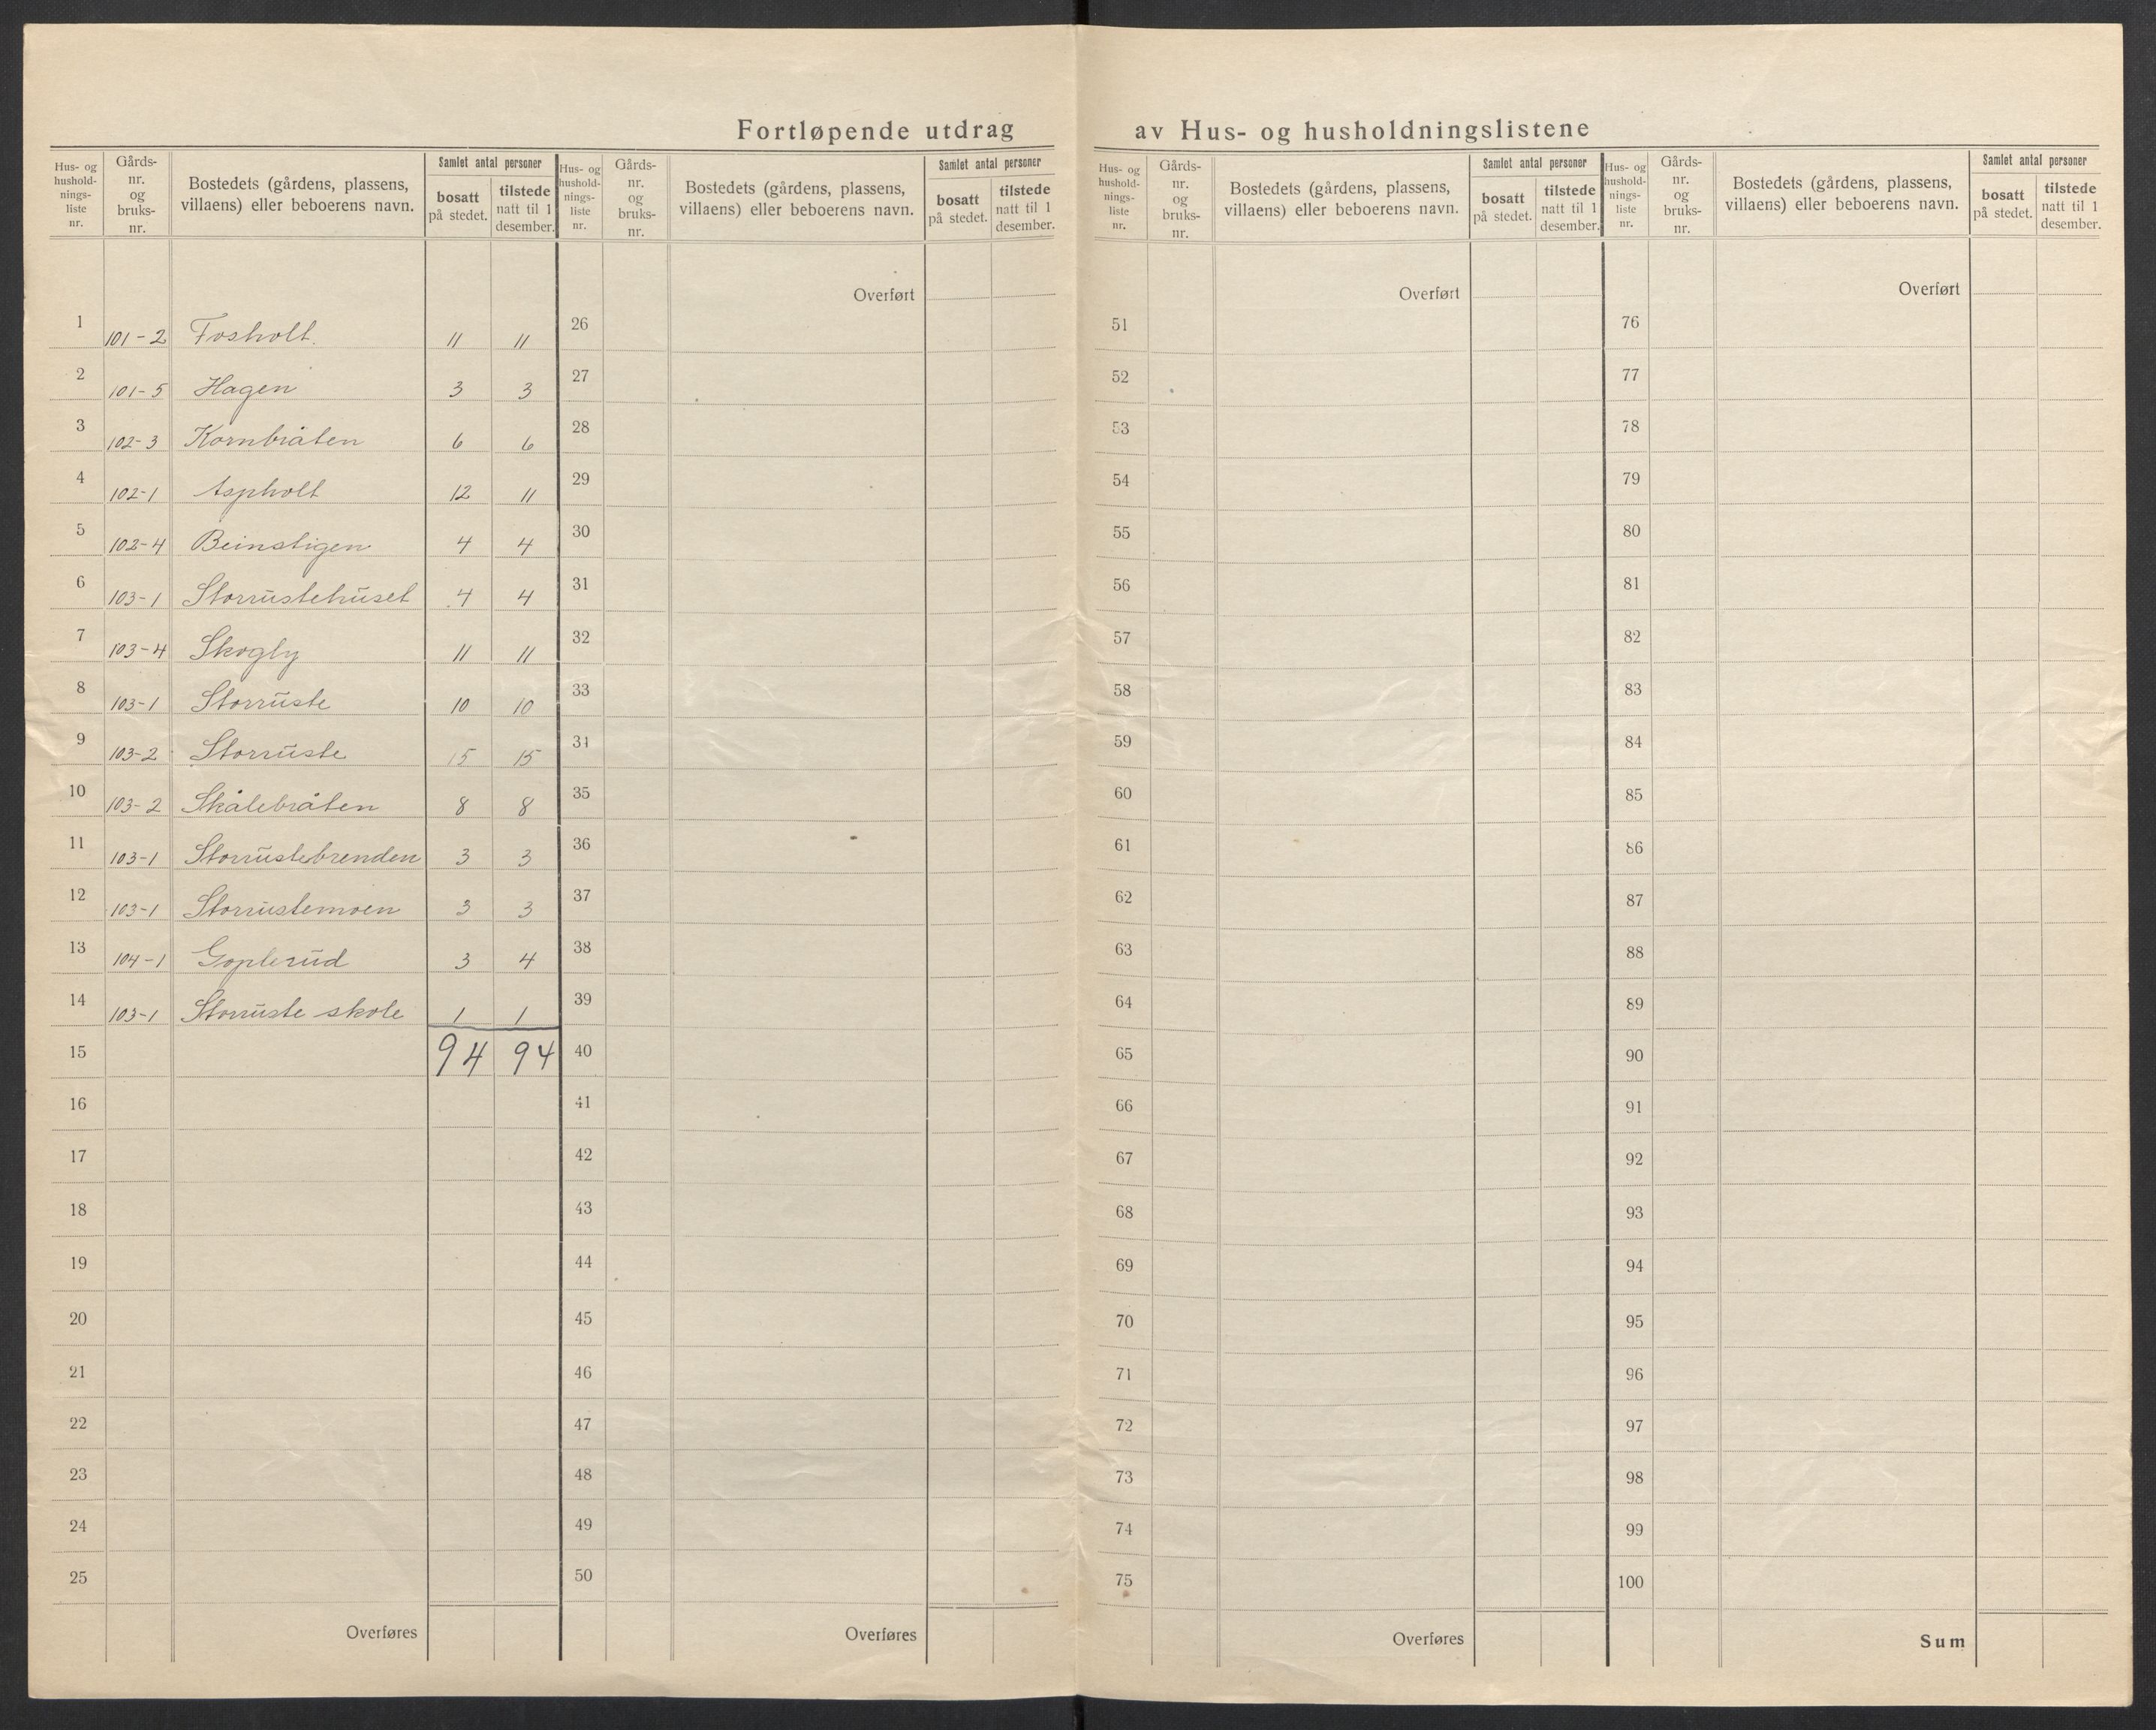 Fortløpende utdrag av Hus- og husholdningslistene
Hus- og hushold-nings-liste nr. | Gårds-nr. og bruks-nr. | Bostedets (gårdens, plassens, villaens) eller beboerens navn. | Samlet antal personer | bosatt på stedet. | tilstede natt til 1 desember.
1 101-2 Fosholt. 11 11
2 101-5 Hagen 3 3
3 102-3 Kornbråten 6 6
4 102-1 Aspholt 12 11
5 102-4 Beinstigen 4 4
6 103-1 Storrustehuset 4 4
7 103-4 Skogly 11 11
8 103-1 Storruste 10 10
9 103-2 Storruste 15 15
10 103-2 Skålebråten 8 8
11 103-1 Storrustebrenden 3 3
12 103-1 Storrustemoen 3 3
13 104-1 Goplerud 3 4
14 103-1 Storruste skole 1 1
15 94 94
16
17
18
19
20
21
22
23
24
25
Overføres
Hus- og hushold-nings-liste nr. | Gårds-nr. og bruks-nr. | Bostedets (gårdens, plassens, villaens) eller beboerens navn. | Samlet antal personer | bosatt på stedet. | tilstede natt til 1 desember.
Overført
26
27
28
29
30
31
32
33
34
35
36
37
38
39
40
41
42
43
44
45
46
47
48
49
50
Overføres
Hus- og hushold-nings-liste nr. | Gårds-nr. og bruks-nr. | Bostedets (gårdens, plassens, villaens) eller beboerens navn. | Samlet antal personer | bosatt på stedet. | tilstede natt til 1 desember.
Overført
51
52
53
54
55
56
57
58
59
60
61
62
63
64
65
66
67
68
69
70
71
72
73
74
75
Overføres
Hus- og hushold-nings-liste nr. | Gårds-nr. og bruks-nr. | Bostedets (gårdens, plassens, villaens) eller beboerens navn. | Samlet antal personer | bosatt på stedet. | tilstede natt til 1 desember.
Overført
76
77
78
79
80
81
82
83
84
85
86
87
88
89
90
91
92
93
94
95
96
97
98
99
100
Sum